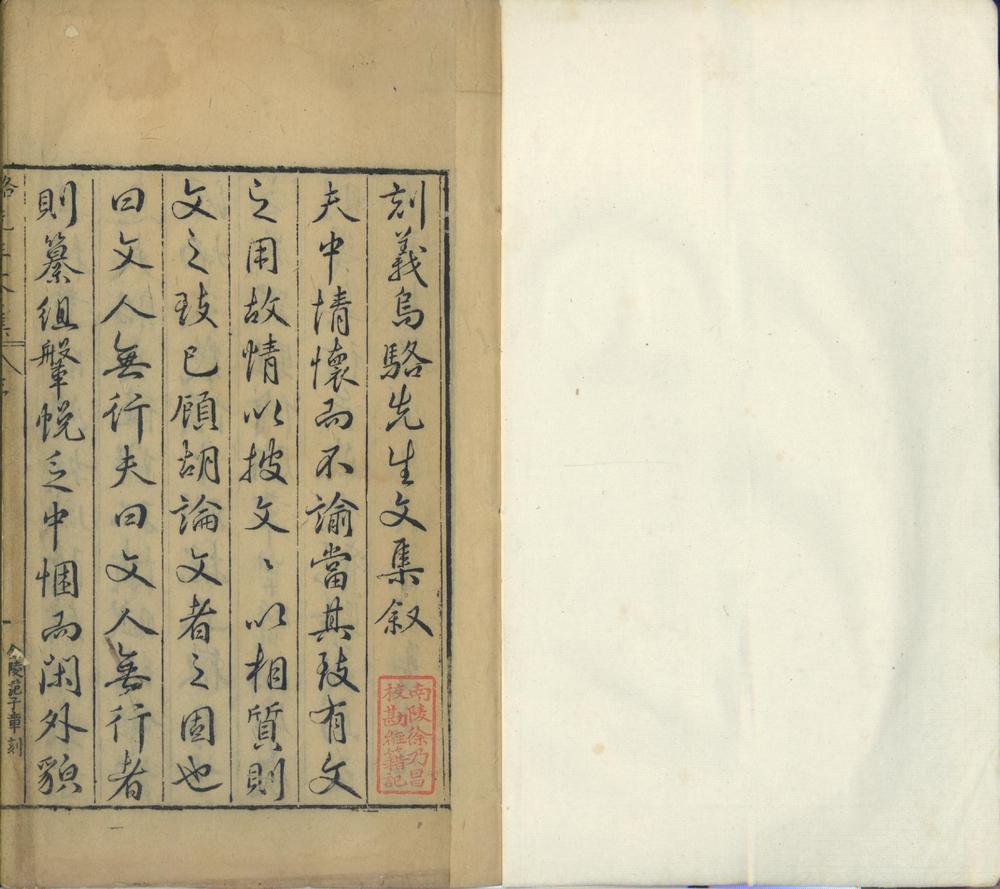 刻義烏駱先生文集叙
南陵徐乃昌
校勘經籍記
夫中情懷而不諭當其致有文
之用故情以披文〻以相質則
文之致已顧胡論文者之固也
曰文人無行夫曰文人無行者
則纂組鞶帨乏中悃而閑外貌
陵范子章刻